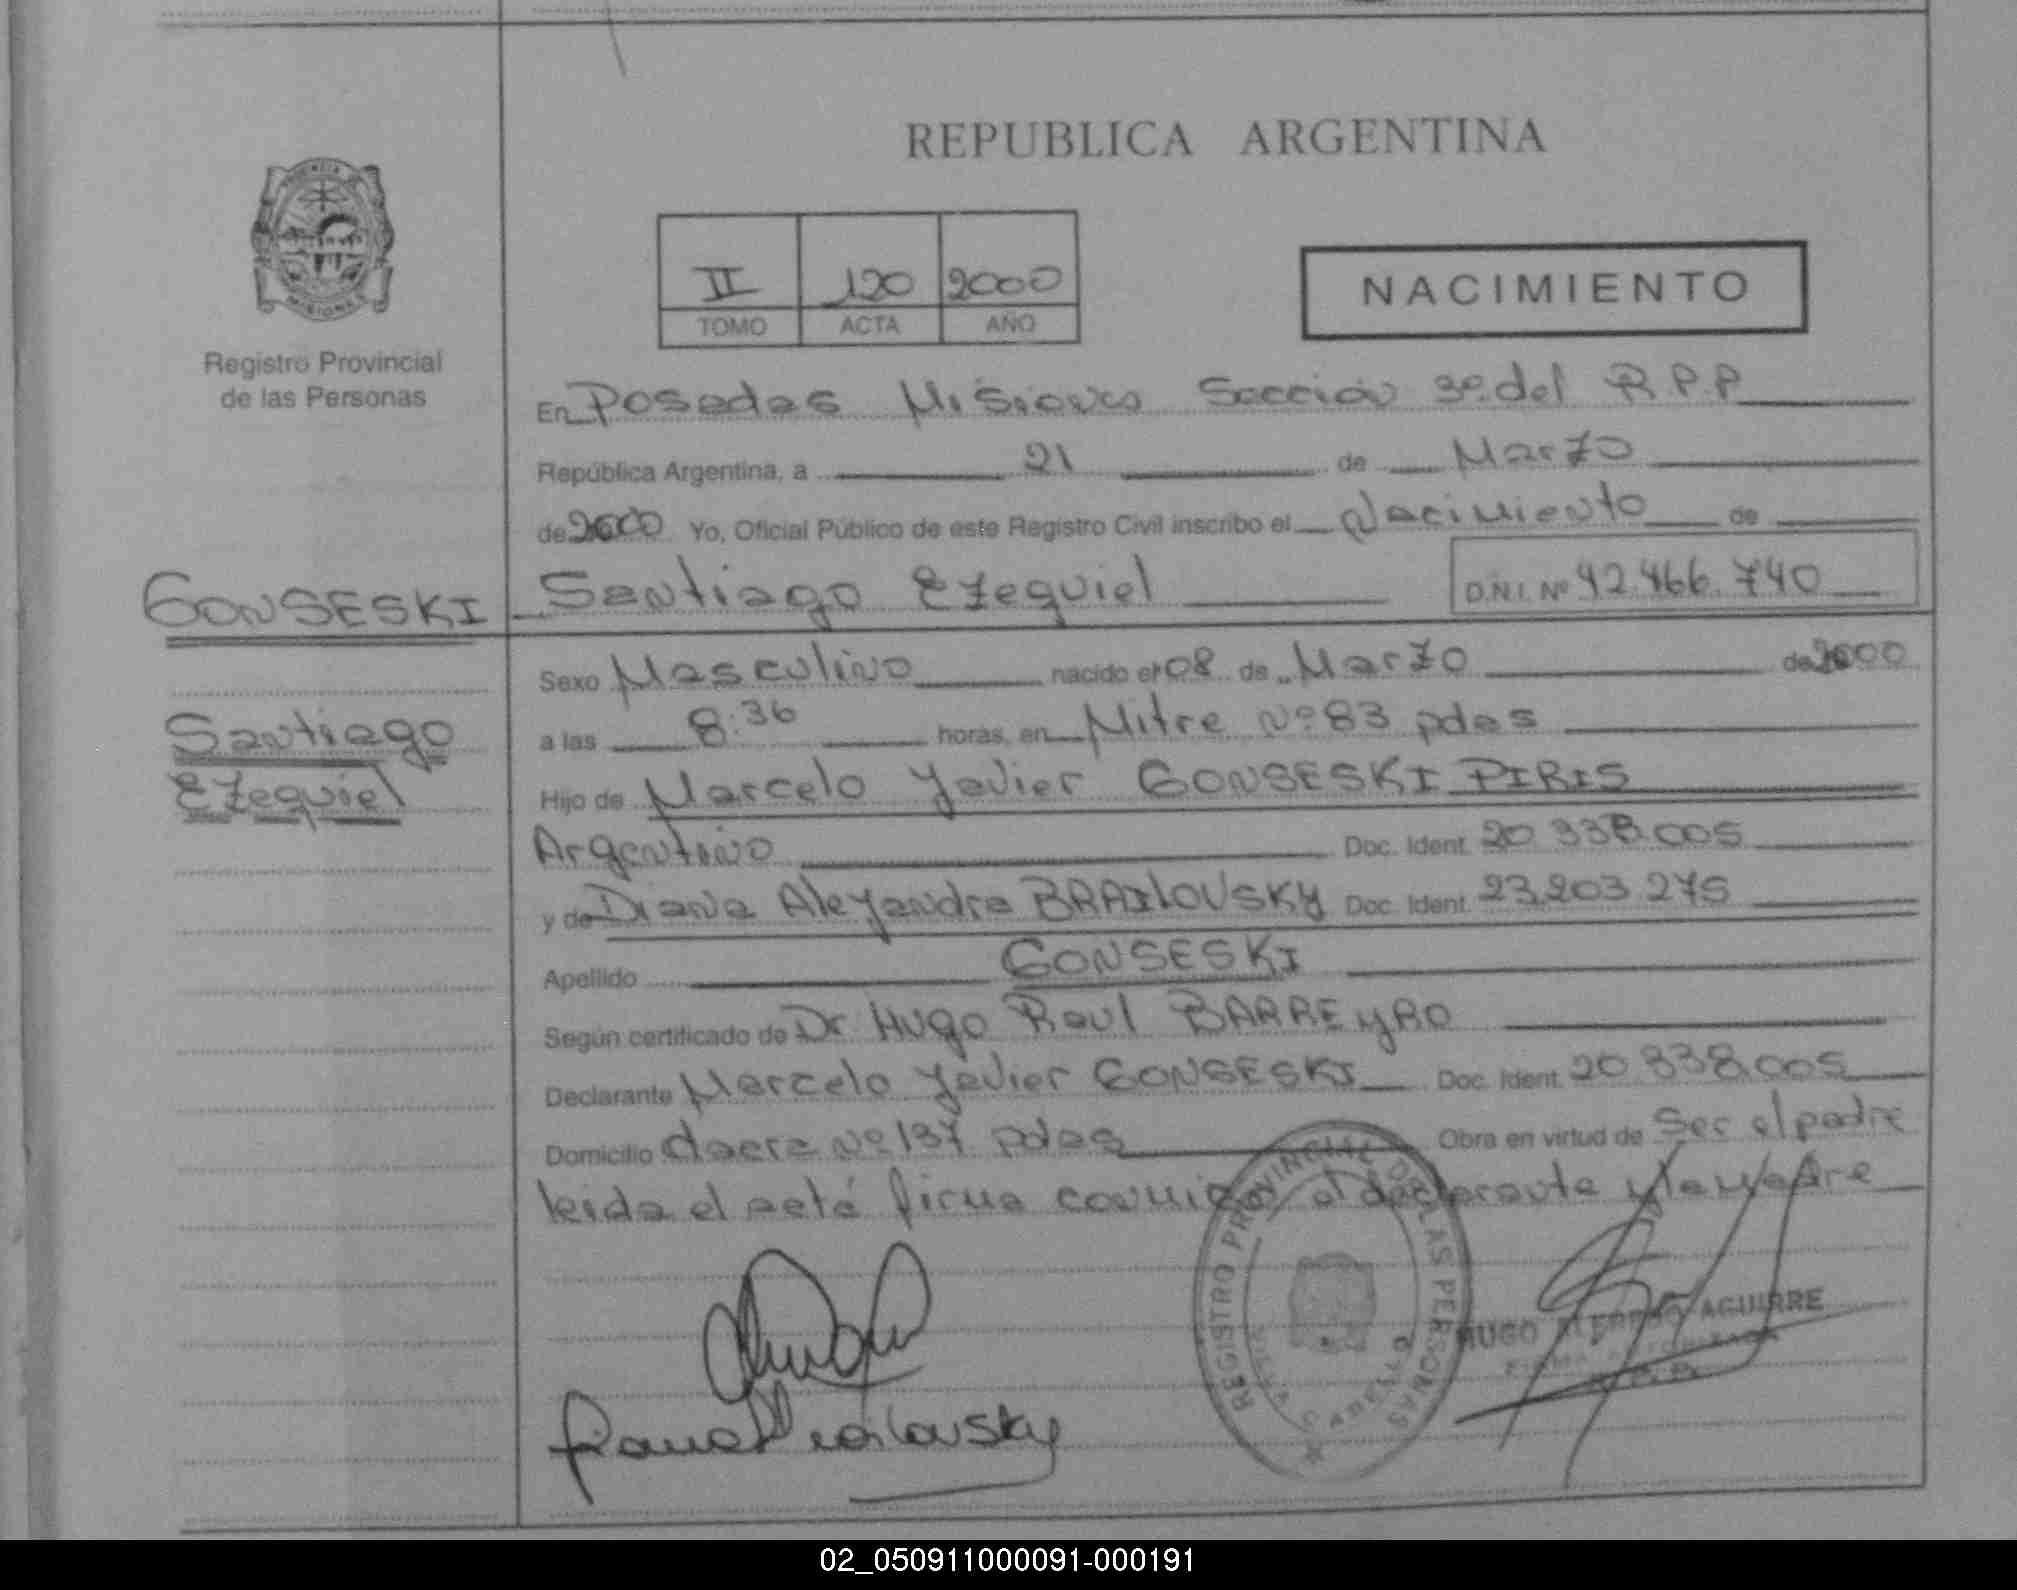 REPUBLICA ARGENTINA
II 120 2000
TOMO ACTA AÑO
NACIMIENTO
Registro Provincial
de las Personas
En Posadas Misiones Sección 3º del R.P.P.
República Argentina, a 21 de Marzo
de 2000 Yo, Oficial Público de este Registro Civil inscribo el Nacimiento de
GONSESKI
Santiago Ezequiel D.N.I. Nº 42.466.740
Santiago
Ezequiel
Sexo Masculino nacido el 08 de Marzo de 2000
a las 8:36 horas, en Mitre Nº 83 pdas
Hijo de Marcelo Javier GONSESKI PIRIS
Argentino Doc. Ident. 20.338.005
y de Diana Alejandra BRAILOVSKY Doc. Ident. 23.203.275
Apellido GONSESKI
Según certificado de Dr Hugo Raul BARREYRO
Declarante Marcelo Javier GONSESKI Doc. Ident. 20.338.005
Domicilio chacra Nº 137 pdas Obra en virtud de Ser el padre
leida el acta firma conmigo el declarante y la madre
REGISTRO PROVINCIAL DE LAS PERSONAS
HUGO ALFREDO AGUIRRE
02_050911000091-000191